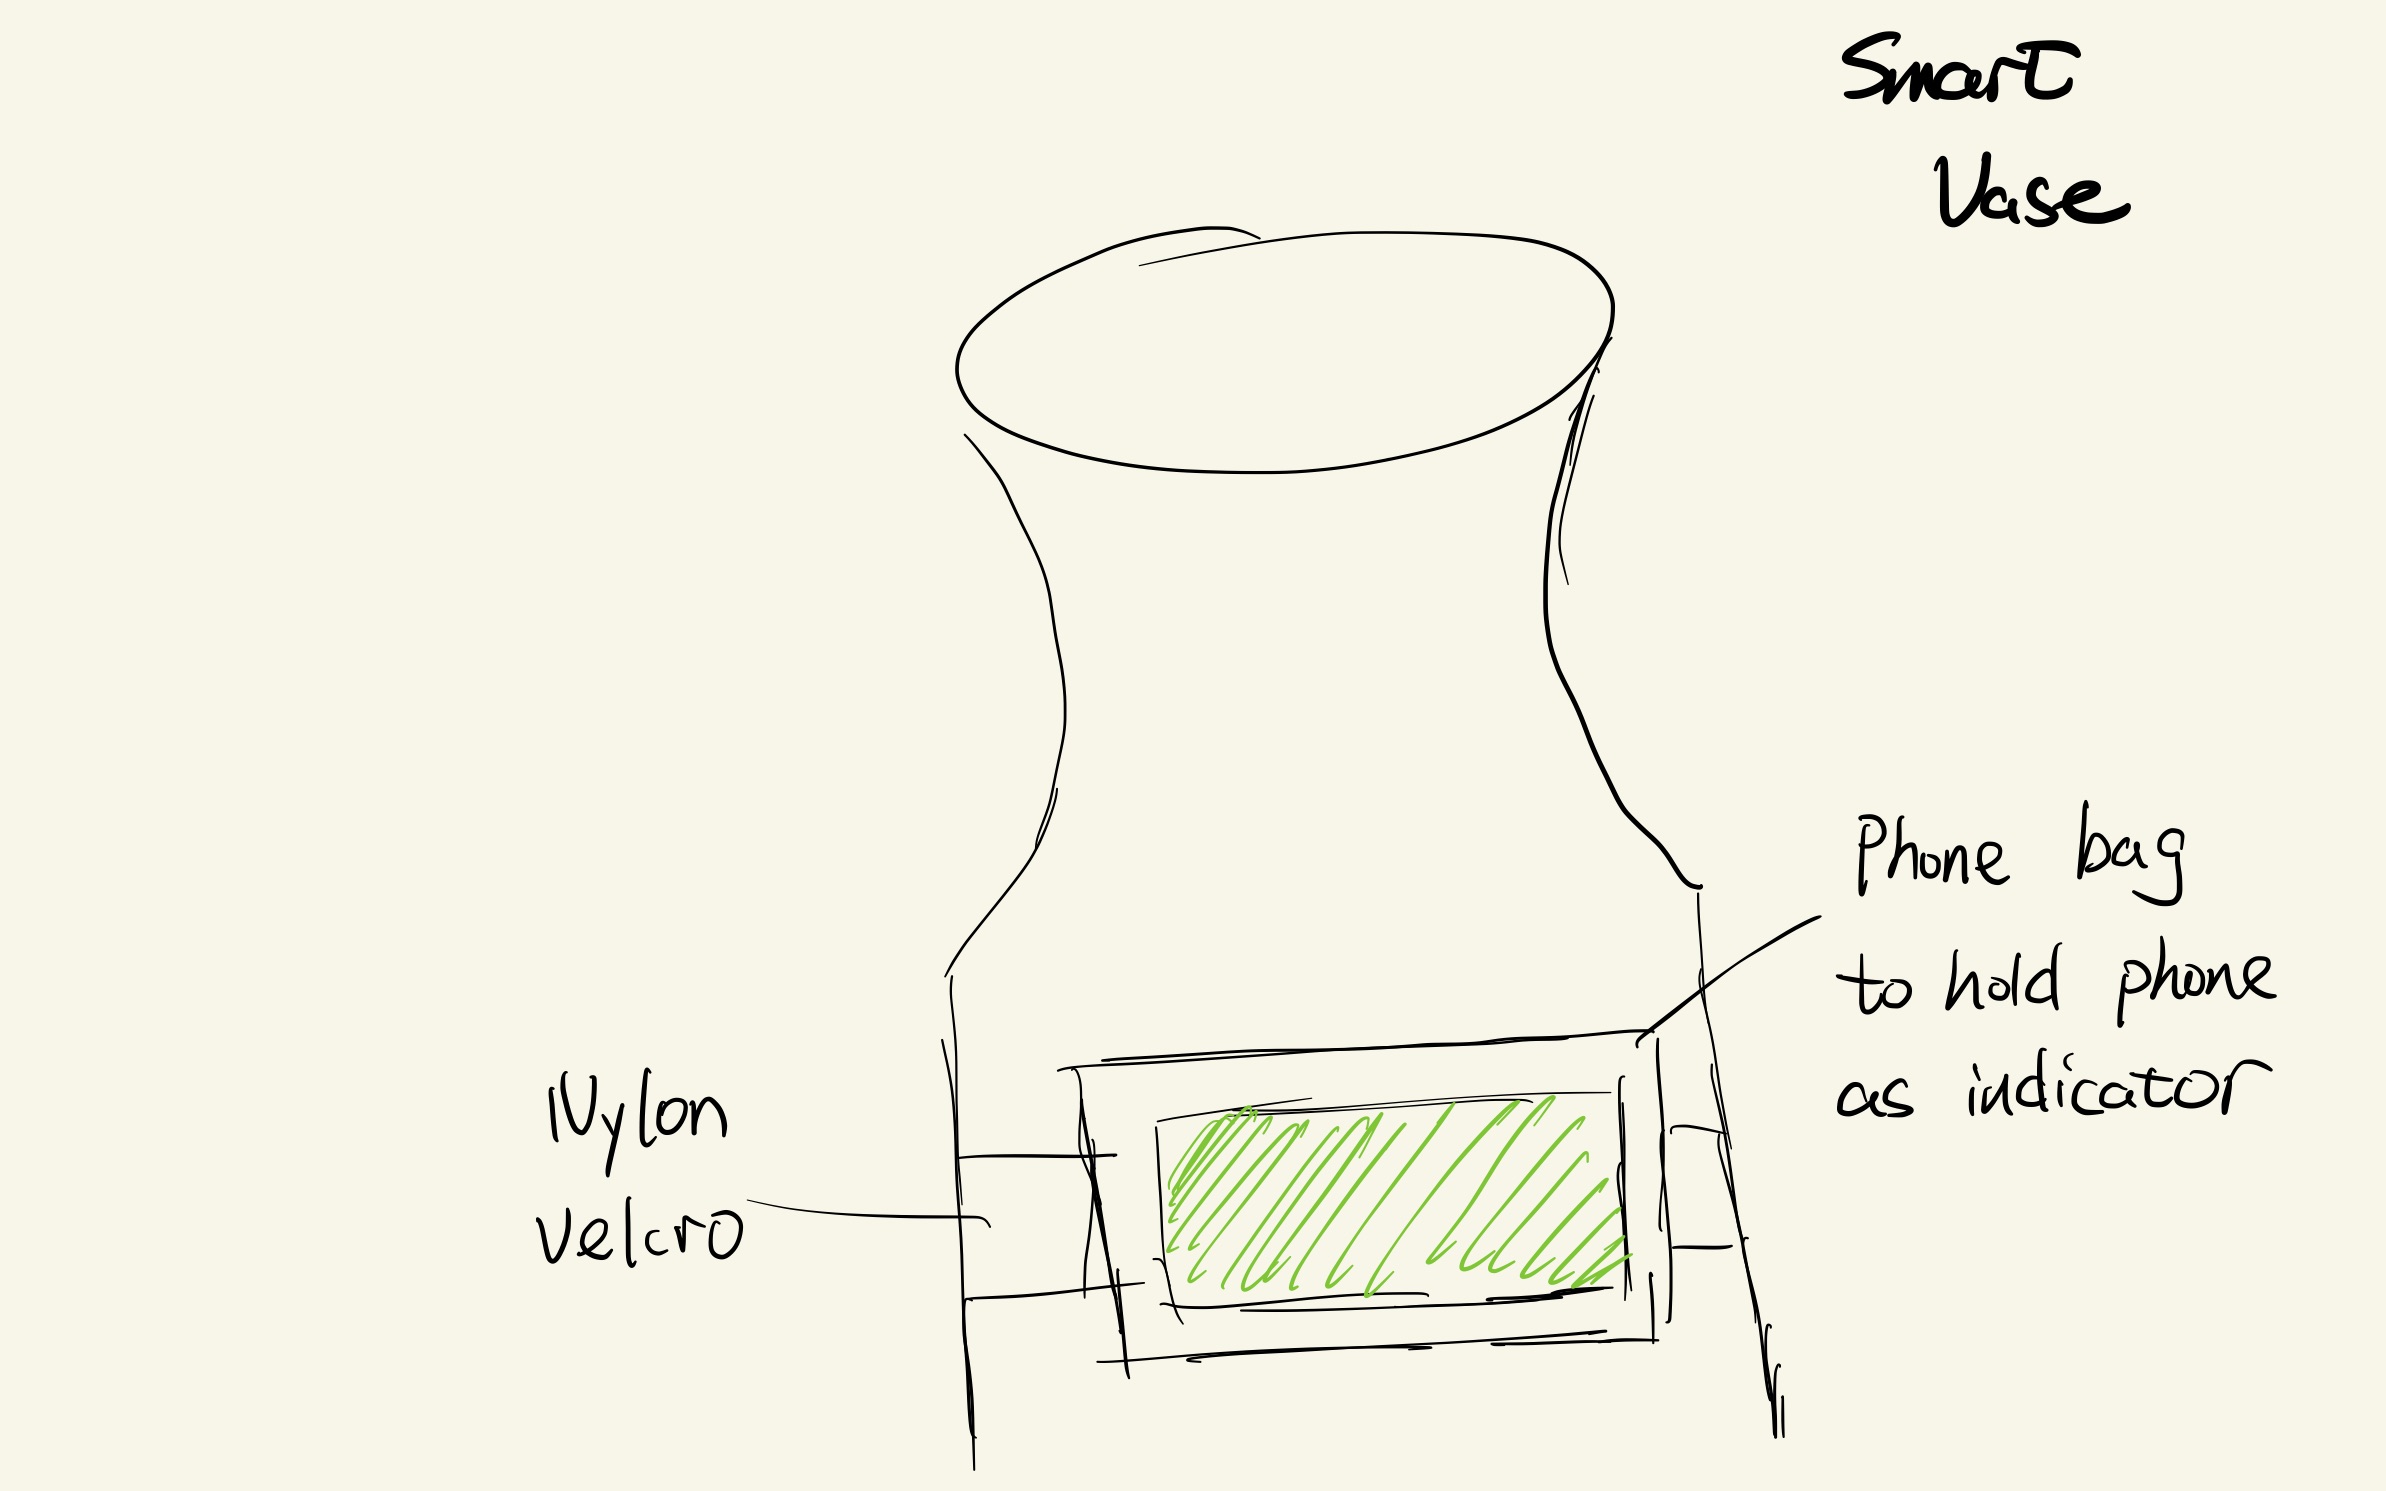 Smart
Vase
Phone bag
to hold phone
as indicator
Nylon
velcro